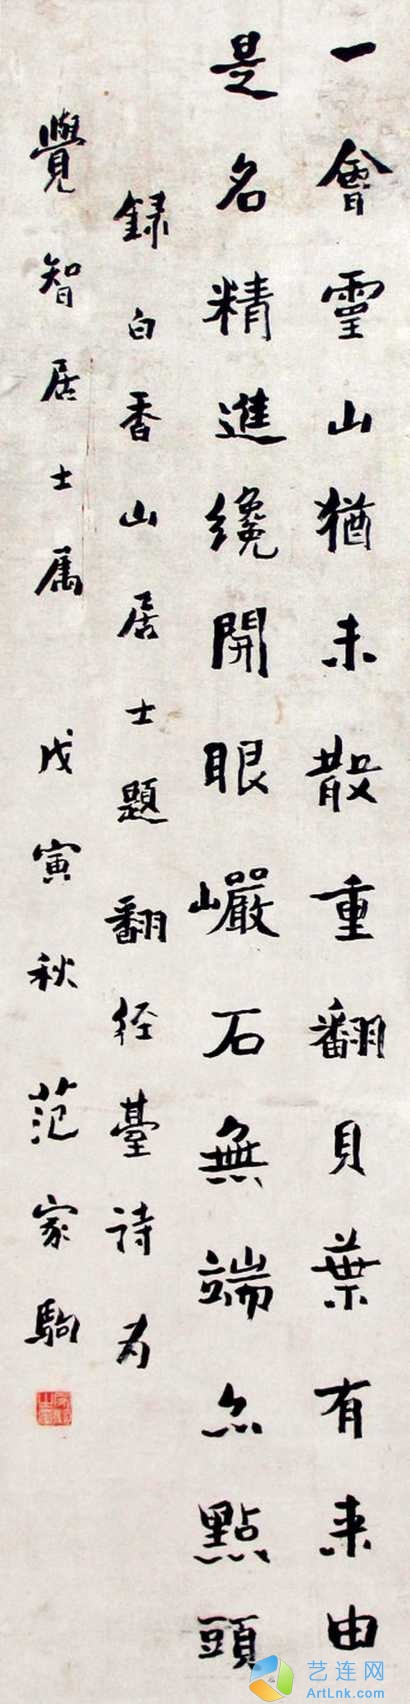 一會靈山猶未散重翻貝葉有来由
是名精進纔開眼巖石無端亦點頭
録白香山居士題翻経臺詩为
覺智居士属 戊寅秋 范家駒
艺连网
ArtLnk.com